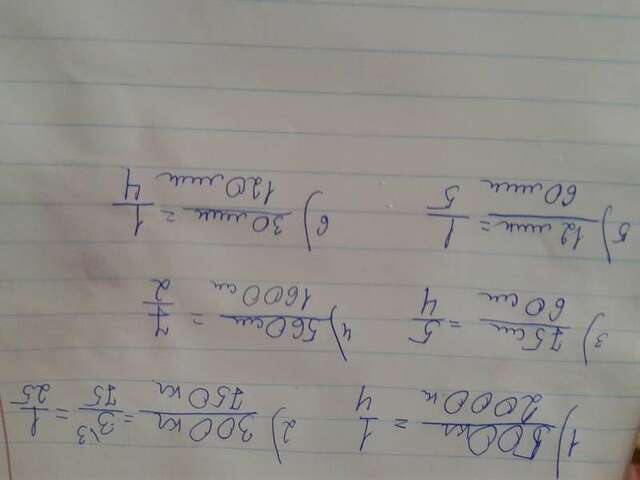 1) 500кг/2000к = 1/4 2) 300кг/750кг = 3\3/75 = 1/25
3) 75см/60см = 5/4 4) 560см/1600см = 7/2
5) 12мин/60мин = 1/5 6) 30мин/120мин = 1/4